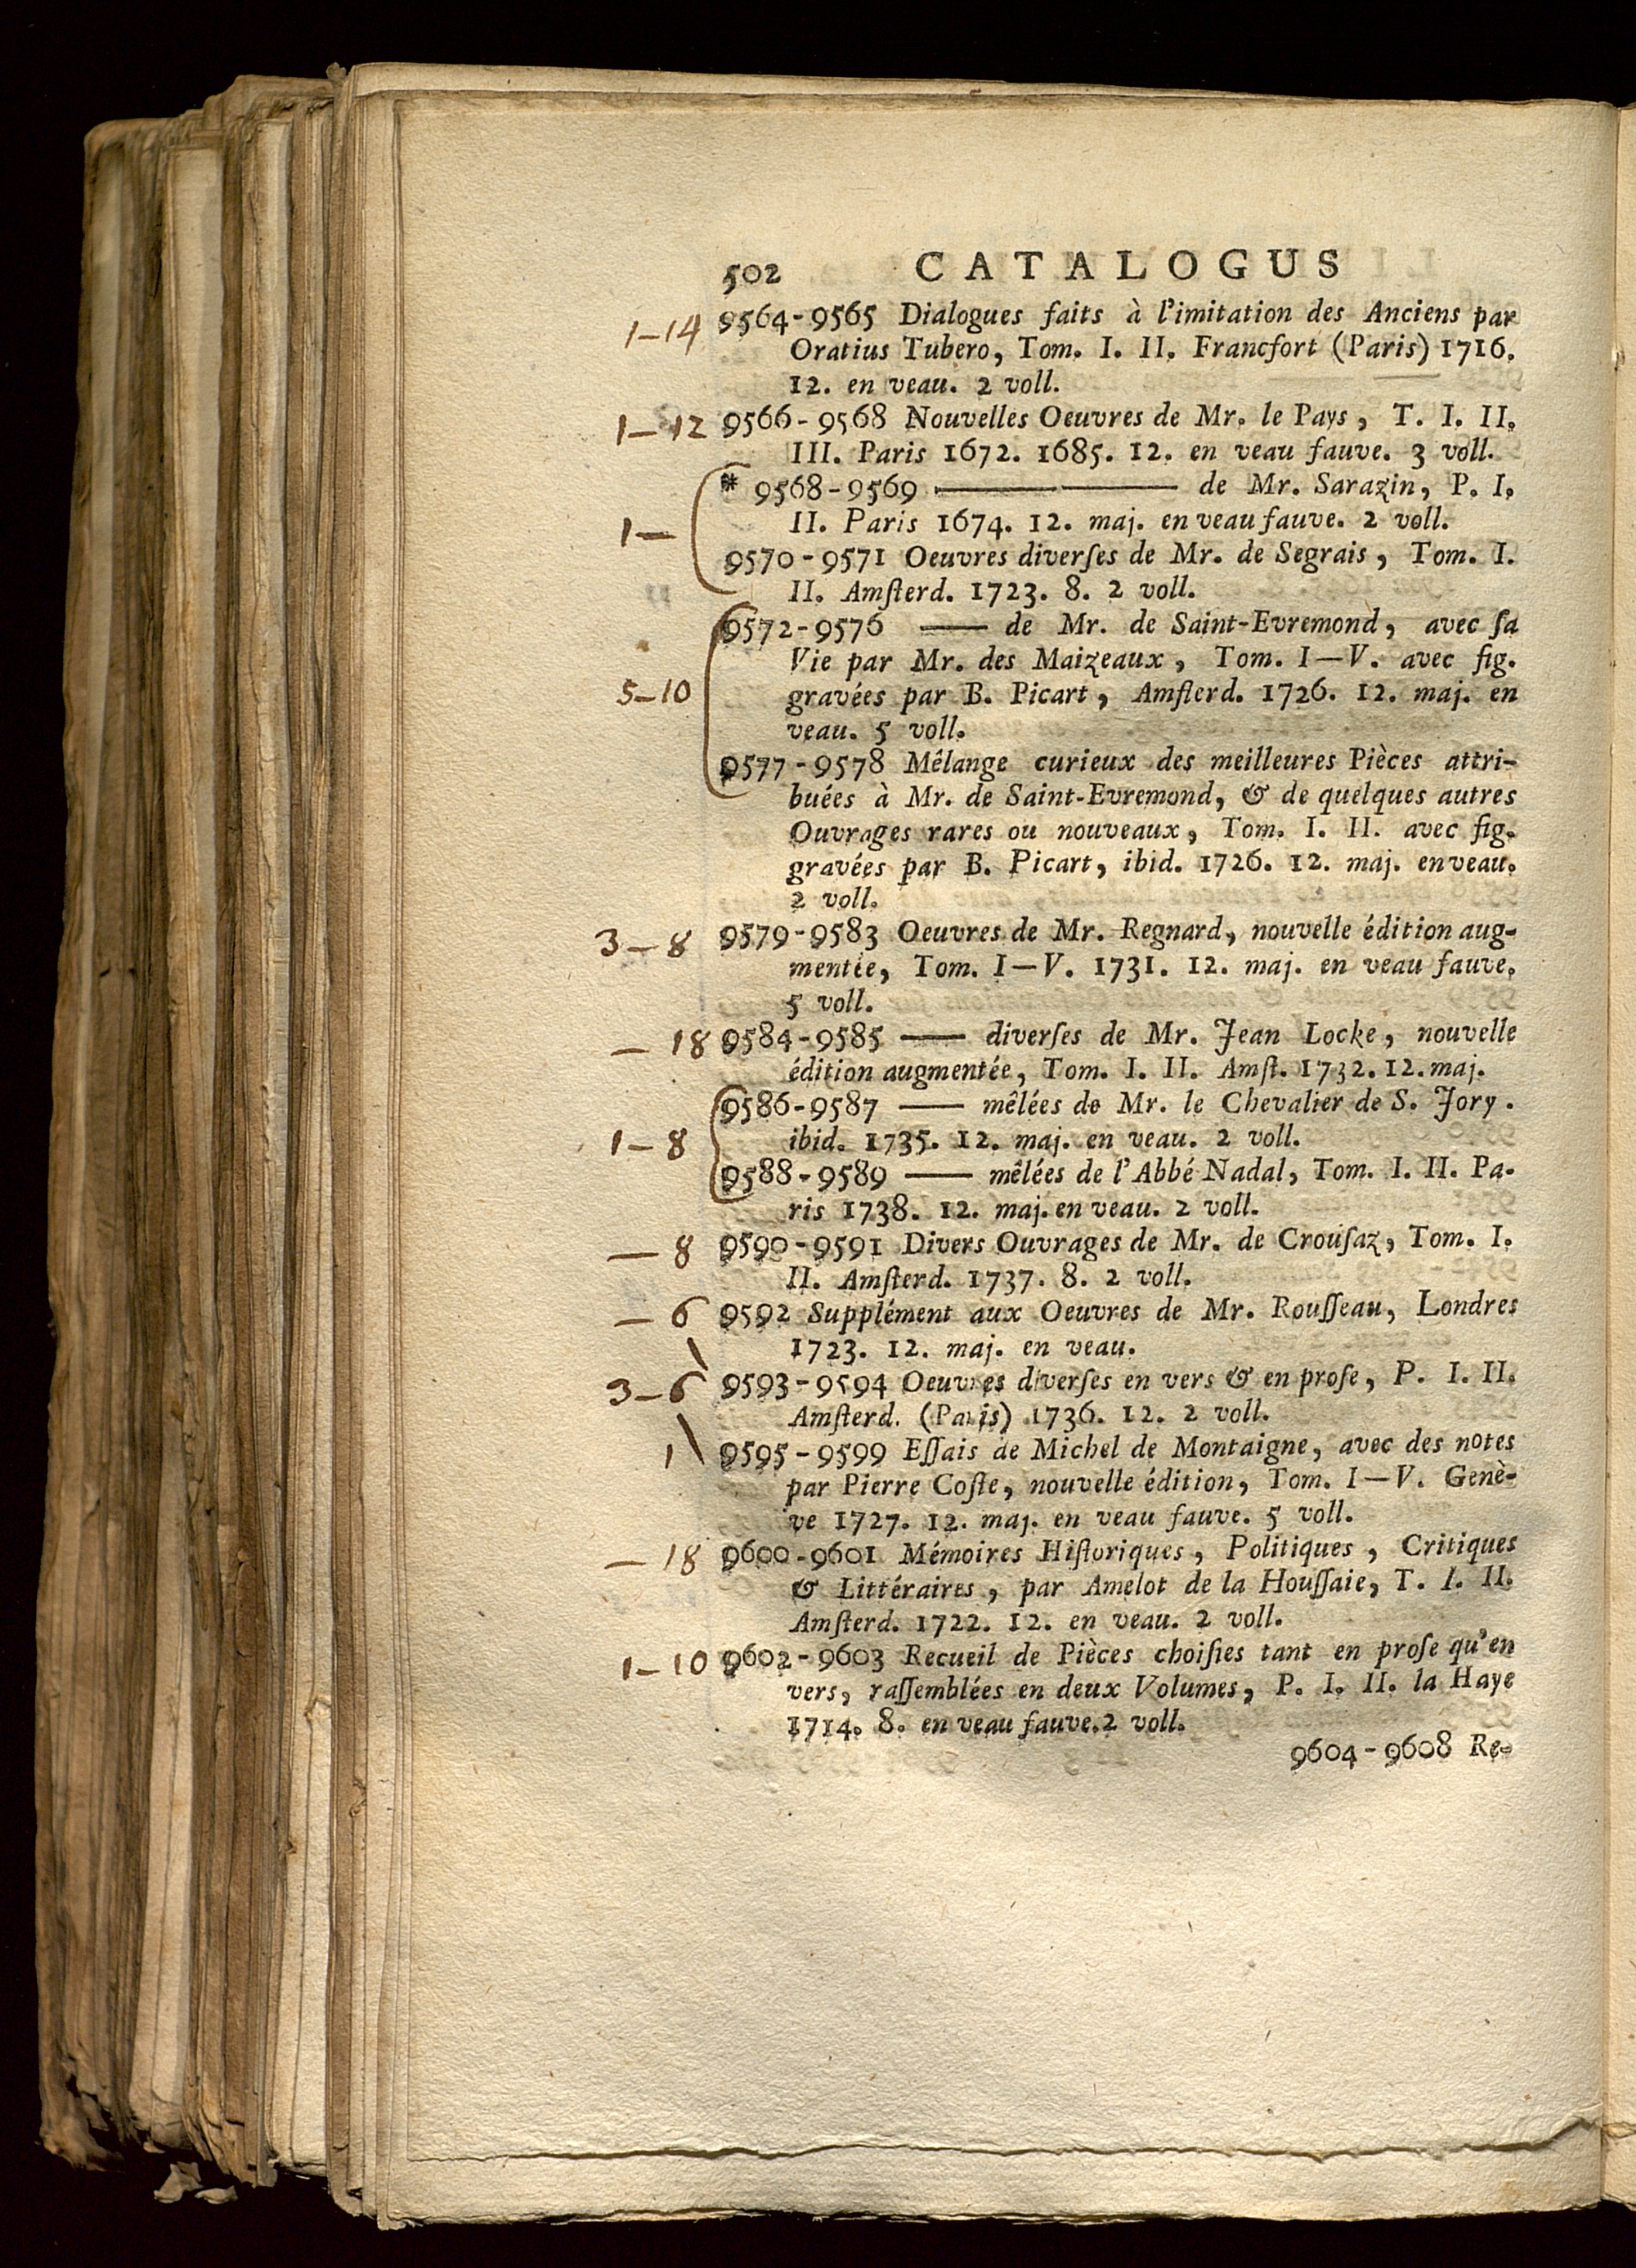 502 CATALOGUS
1-14 9564-9565 Dialogues faits à l'imitation des Anciens par
Oratius Tubero, Tom. I. II. Francfort (Paris) 1716.
12. en veau. 2 voll.
1-12 9566-9568 Nouvelles Oeuvres de Mr. le Pays, T. I. II.
III. Paris 1672. 1685. 12. en veau fauve. 3 voll.
* 9568-9569 ——— de Mr. Sarazin, P. I.
1- II. Paris 1674. 12. maj. en veau fauve. 2 voll.
9570-9571 Oeuvres diverſes de Mr. de Segrais, Tom. I.
II. Amſterd. 1723. 8. 2 voll.
9572-9576 —— de Mr. de Saint-Evremond, avec ſa
Vie par Mr. des Maizeaux, Tom. I—V. avec fig.
5-10 gravées par B. Picart, Amſterd. 1726. 12. maj. en
veau. 5 voll.
9577-9578 Mêlange curieux des meilleures Pièces attri-
buées à Mr. de Saint-Evremond, & de quelques autres
Ouvrages rares ou nouveaux, Tom. I. II. avec fig.
gravées par B. Picart, ibid. 1726. 12. maj. en veau.
2 voll.
3-8 9579-9583 Oeuvres de Mr. Regnard, nouvelle édition aug-
mentée, Tom. I—V. 1731. 12. maj. en veau fauve.
5 voll.
-18 9584-9585 —— diverſes de Mr. Jean Locke, nouvelle
édition augmentée, Tom. I. II. Amſt. 1732. 12. maj.
9586-9587 —— mêlées de Mr. le Chevalier de S. Jory.
1-8 ibid. 1735. 12. maj. en veau. 2 voll.
9588-9589 —— mêlées de l'Abbé Nadal, Tom. I. II. Pa-
ris 1738. 12. maj. en veau. 2 voll.
-8 9590-9591 Divers Ouvrages de Mr. de Crouſaz, Tom. I.
II. Amſterd. 1737. 8. 2 voll.
-6 9592 Supplément aux Oeuvres de Mr. Rouſſeau, Londres
1723. 12. maj. en veau.
3-6 9593-9594 Oeuvres diverſes en vers & en proſe, P. I. II.
Amſterd. (Paris) 1736. 12. 2 voll.
1 9595-9599 Eſſais de Michel de Montaigne, avec des notes
par Pierre Coſte, nouvelle édition, Tom. I—V. Genè-
ve 1727. 12. maj. en veau fauve. 5 voll.
-18 9600-9601 Mémoires Hiſtoriques, Politiques, Critiques
& Littéraires, par Amelot de la Houſſaie, T. I. II.
Amſterd. 1722. 12. en veau. 2 voll.
1-10 9602-9603 Recueil de Pièces choiſies tant en proſe qu'en
vers, raſſemblées en deux Volumes, P. I. II. la Haye
1714. 8. en veau fauve. 2 voll.
9604-9608 Re-